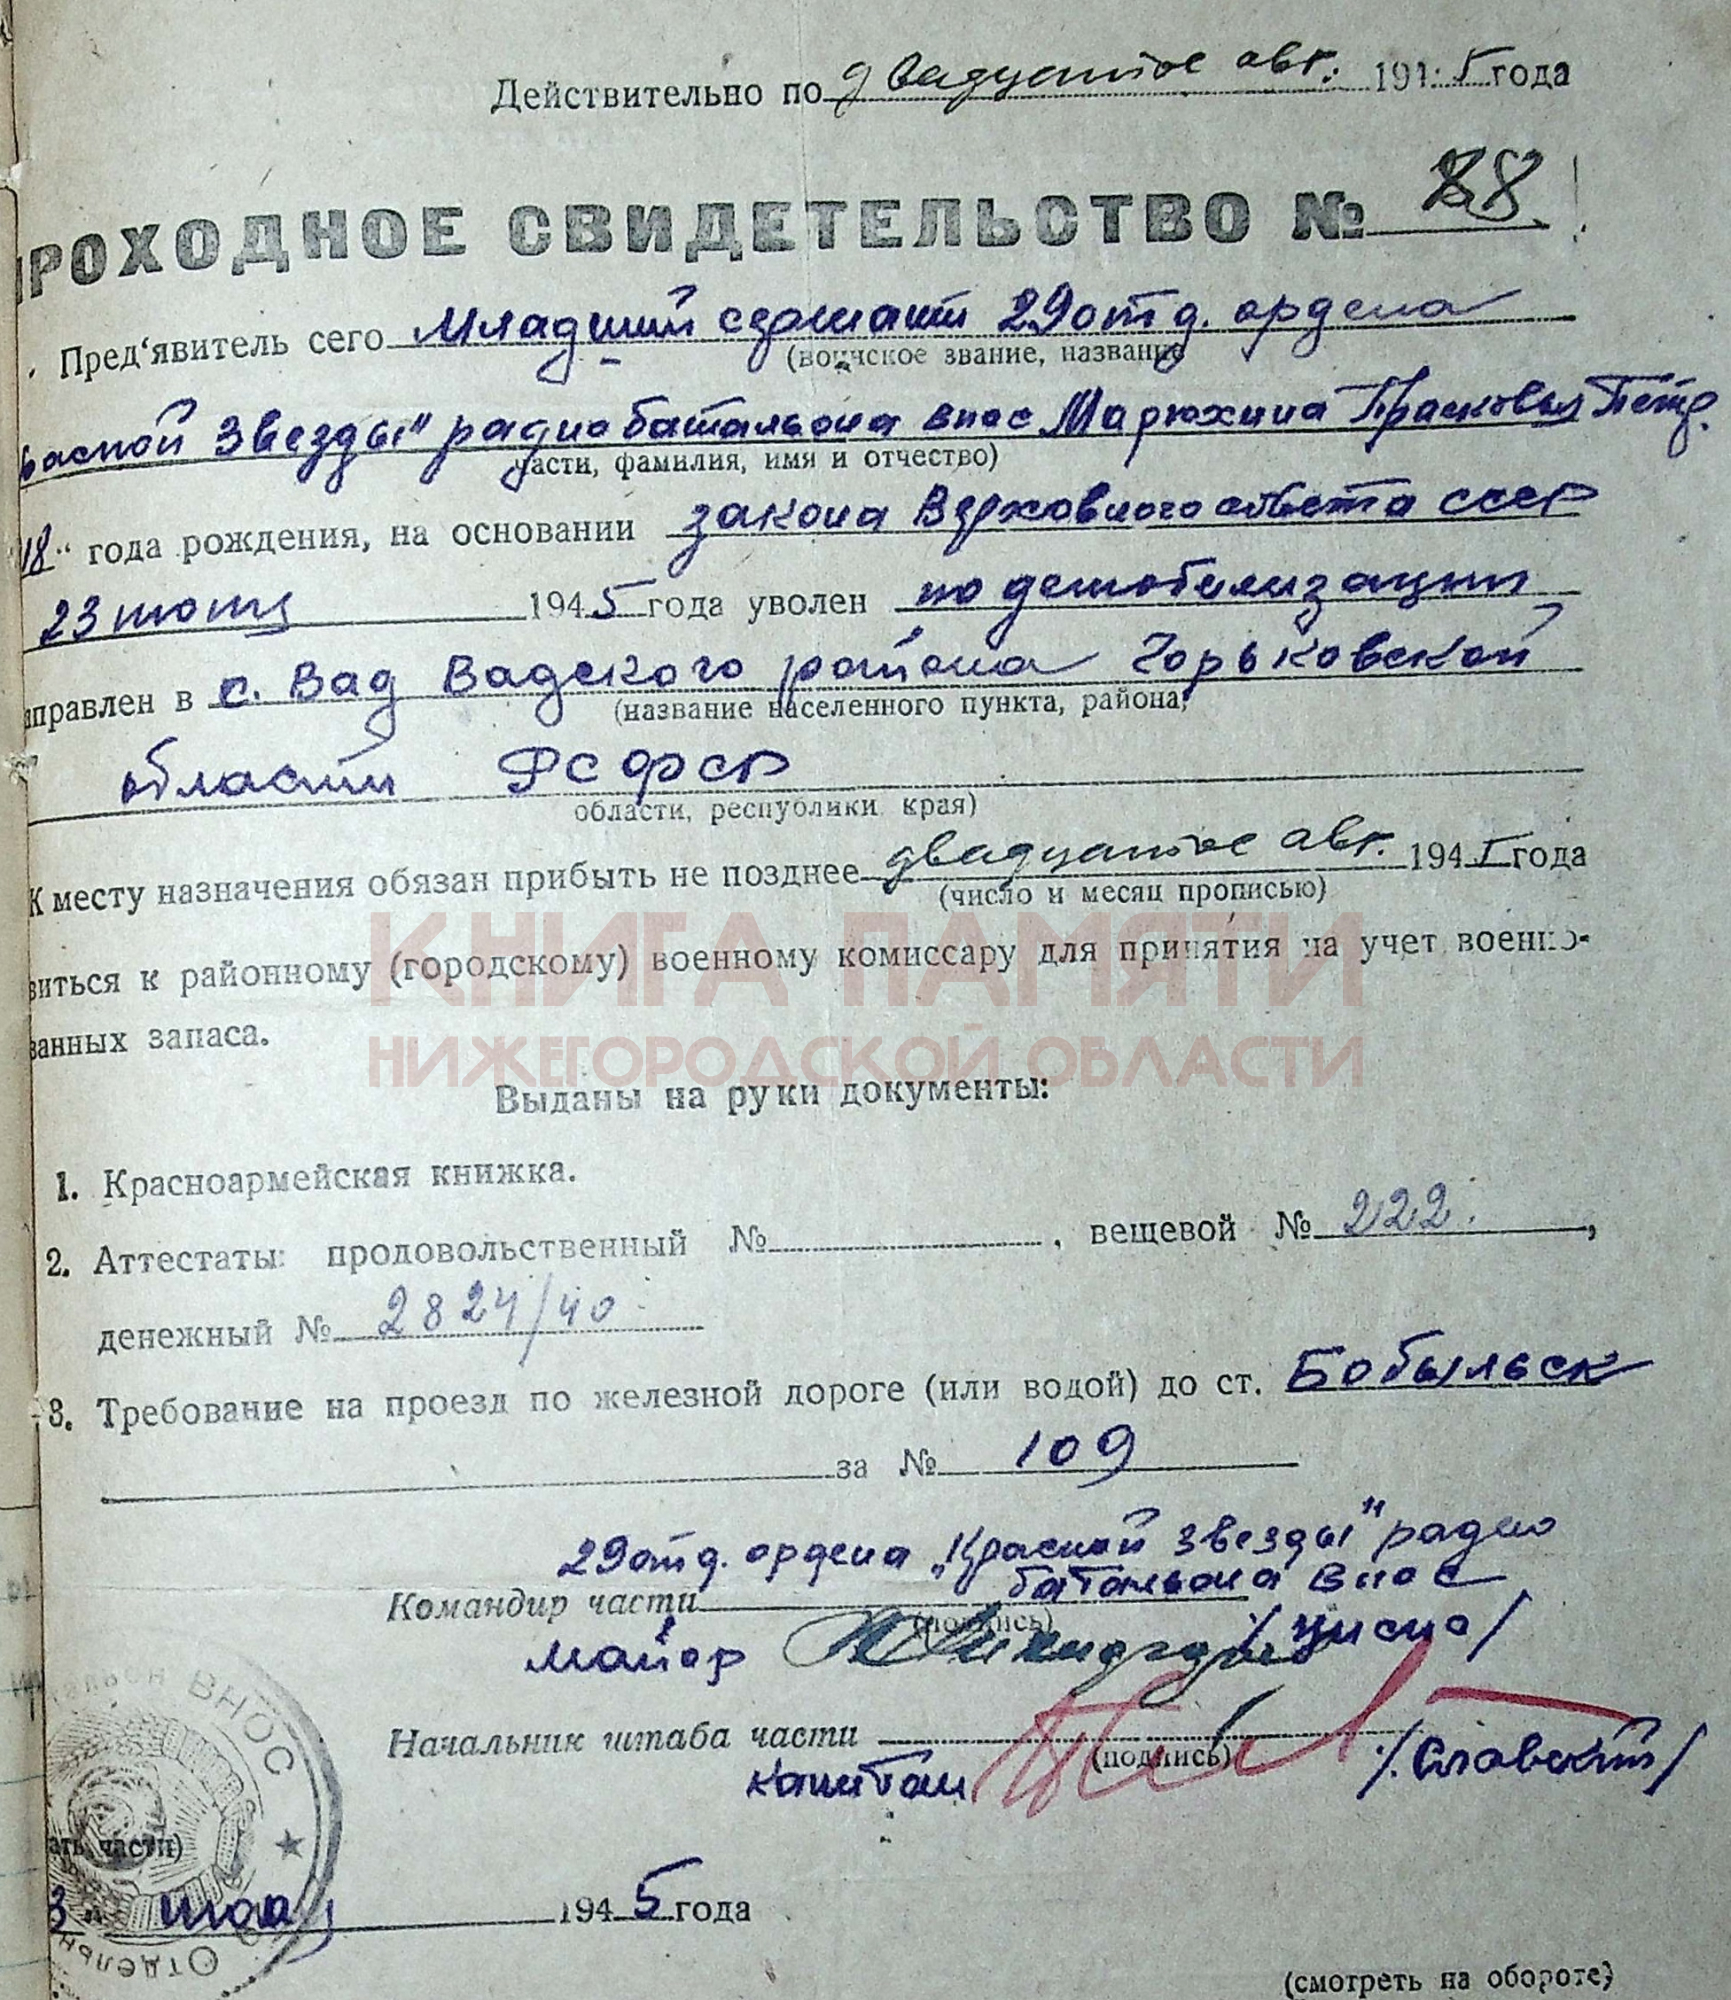 Действительно по двадцатое авг. 1945 года
ПРОХОДНОЕ СВИДЕТЕЛЬСТВО № 88
Пред‘явитель сего Младший сержант 29 отд. ордена
(воинское звание, название
расной Звезды" радиобатальона внос Марюхина Прасковья Петр.
части, фамилия, имя и отчество)
18" года рождения, на основании закона Верховного совета СССР
23 июня 1945 года уволен по демобилизации
аправлен в с. Вад Вадского района Горьковской
(название населенного пункта, района,
области РСФСР
области, республики края)
К месту назначения обязан прибыть не позднее двадцатое авг. 1945 года
(число и месяц прописью)
КНИГА ПАМЯТИ
виться к районному (городскому) военному комиссару для принятия на учет военно-
занных запаса.
НИЖЕГОРОДСКОЙ ОБЛАСТИ
Выданы на руки документы:
1. Красноармейская книжка.
2. Аттестаты: продовольственный № , вещевой № 222.,
денежный № 2824/40
3. Требование на проезд по железной дороге (или водой) до ст. Бобыльск
за № 109
29 отд. ордена „Красной Звезды" радио
батальона Внос
Командир части
(подпись)
майор
Начальник штаба части
(подпись)
капитан /Славский/
ВНОС
ать части)
3" 1945 года
Отдельн
(смотреть на обороте)